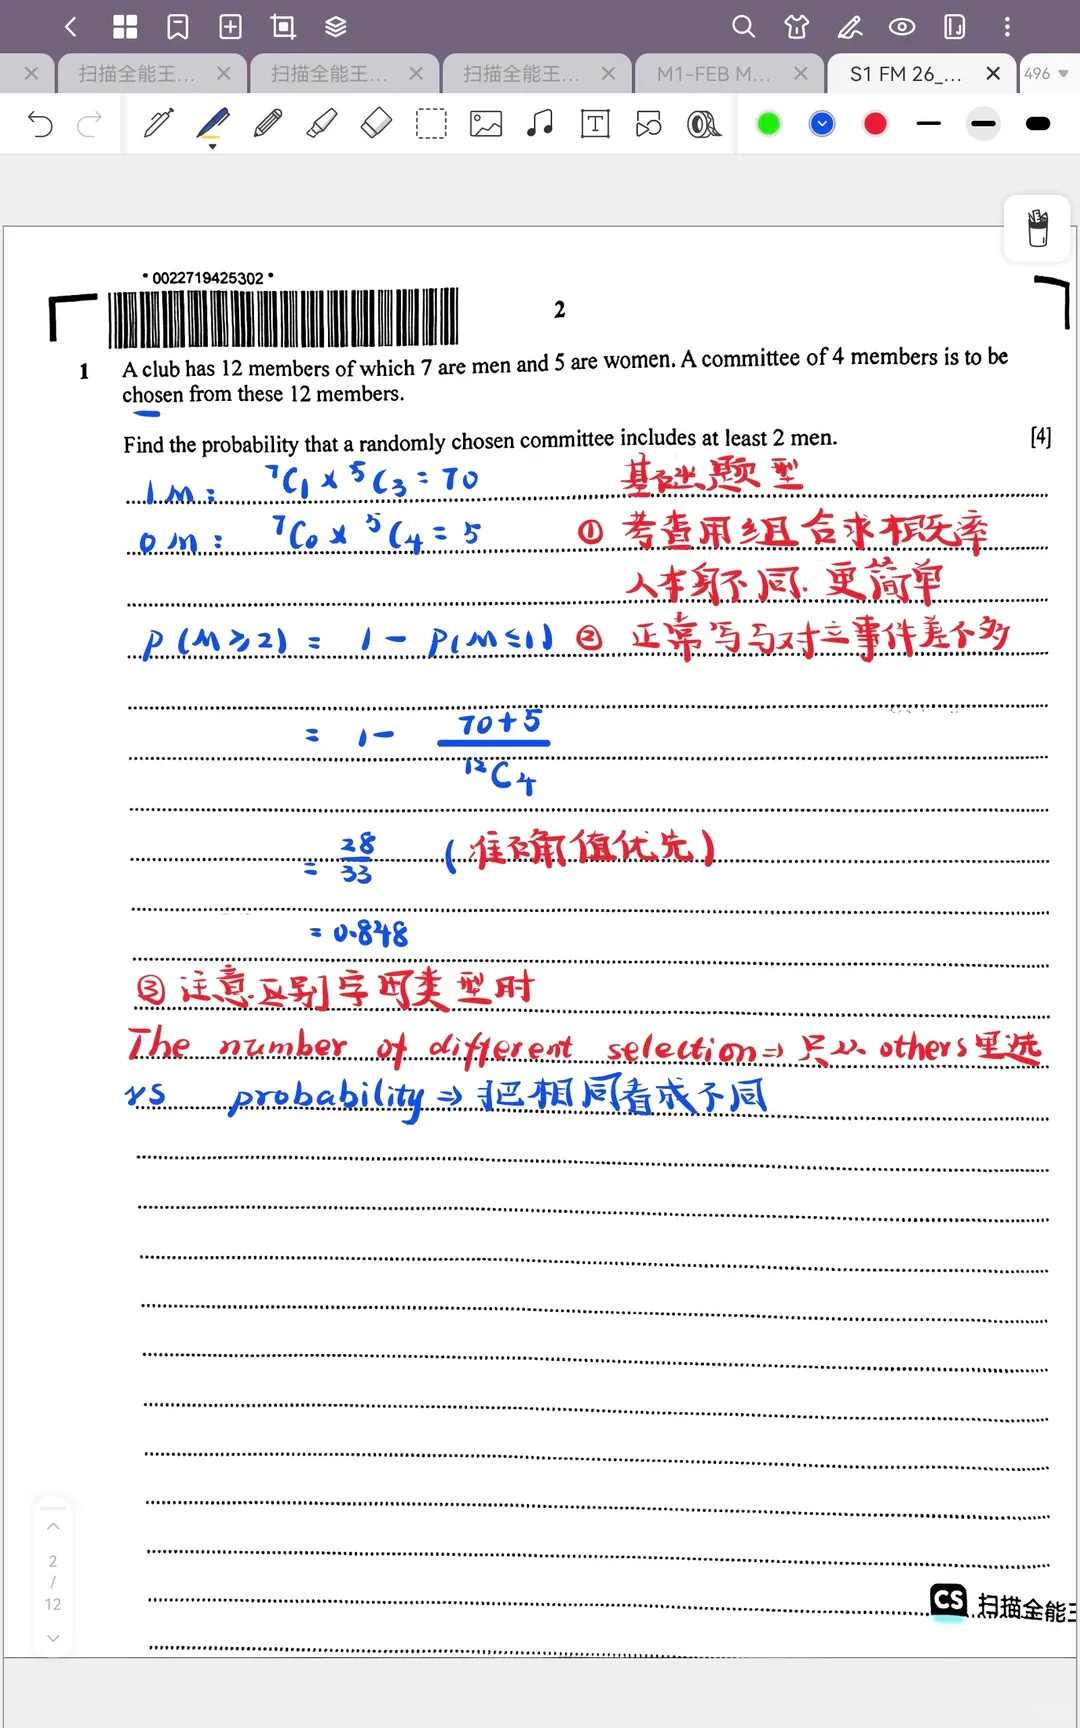 扫描全能王...
扫描全能王...
扫描全能王...
M1-FEB M...
S1 FM 26_...
496
* 0022719425302 *
2
1 A club has 12 members of which 7 are men and 5 are women. A committee of 4 members is to be
chosen from these 12 members.
Find the probability that a randomly chosen committee includes at least 2 men. [4]
1 M: ⁷C₁ × ⁵C₃ = 70 基础题型
0 M: ⁷C₀ × ⁵C₄ = 5 ① 考查用组合求概率
人本身不同. 更简单
P(M ≥ 2) = 1 - P(M ≤ 1) ② 正常写与对立事件差不多
= 1 - (70+5)/¹²C₄
= 28/33 (准确值优先)
= 0.848
③ 注意区别字母类型时
The number of different selection ⇒ 只从 others 里选
vs probability ⇒ 把相同看成不同
2
/
12
CS 扫描全能王